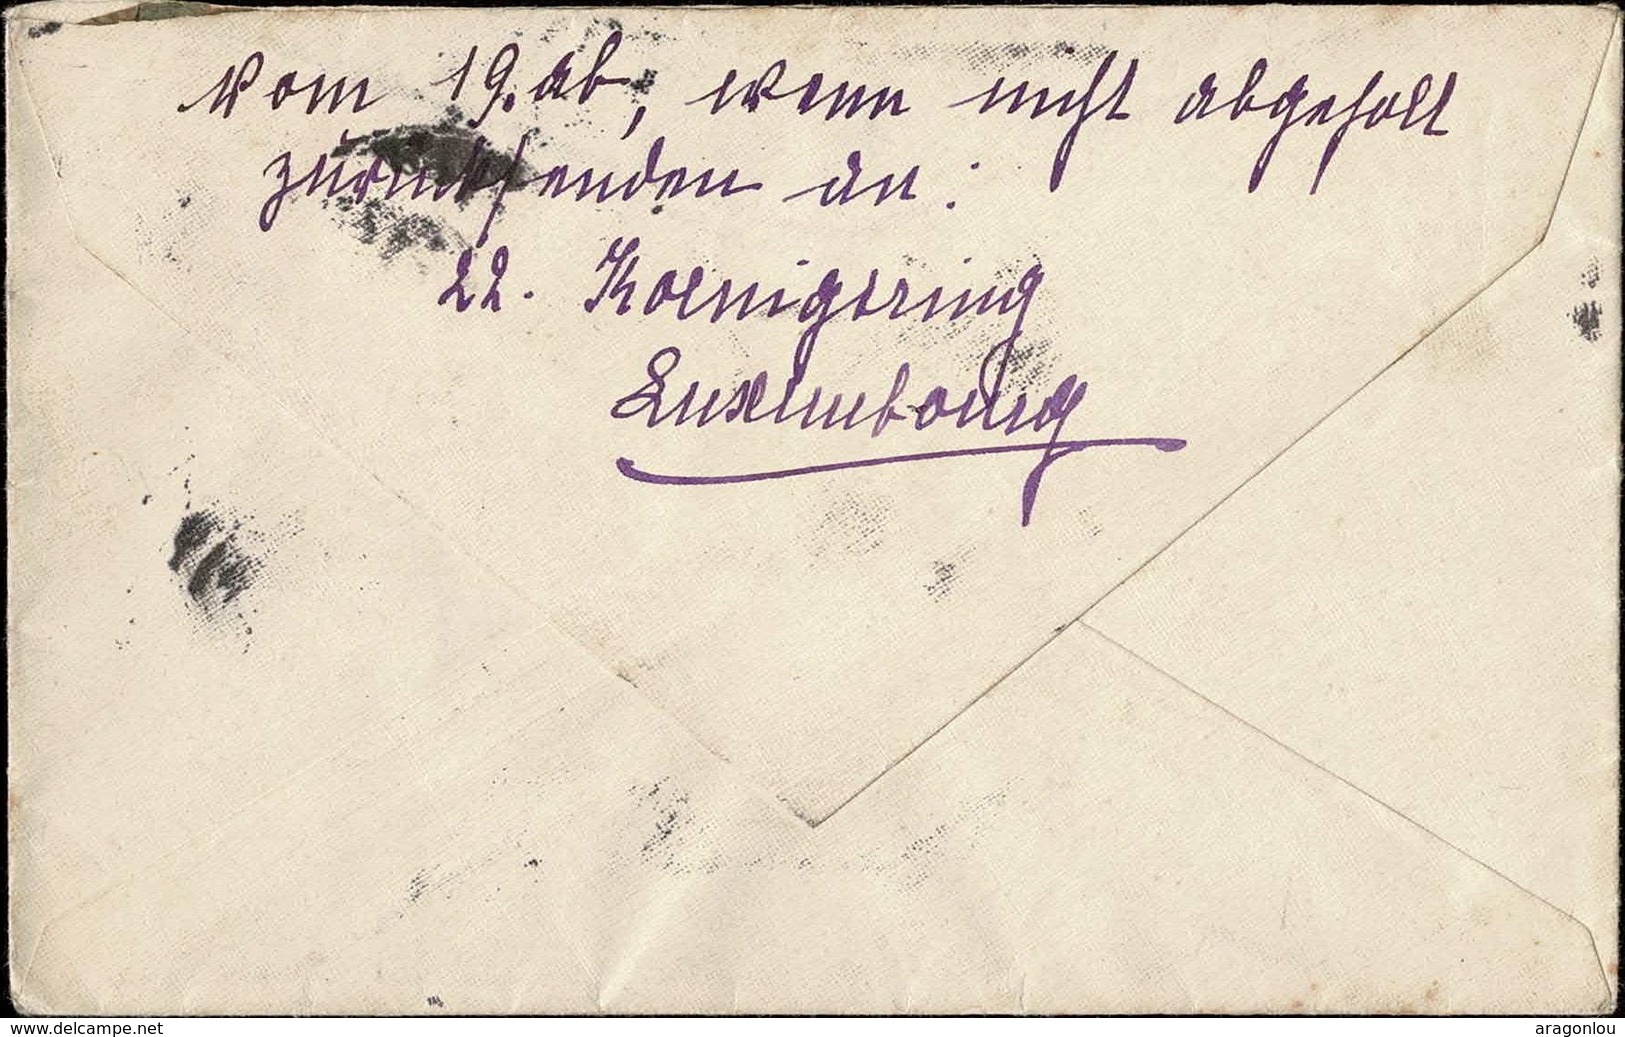 vom 19. ab, wenn nicht abgeholt
zurücksenden an:
22. Koenigsring
Luxembourg
www.delcampe.net
aragonlou